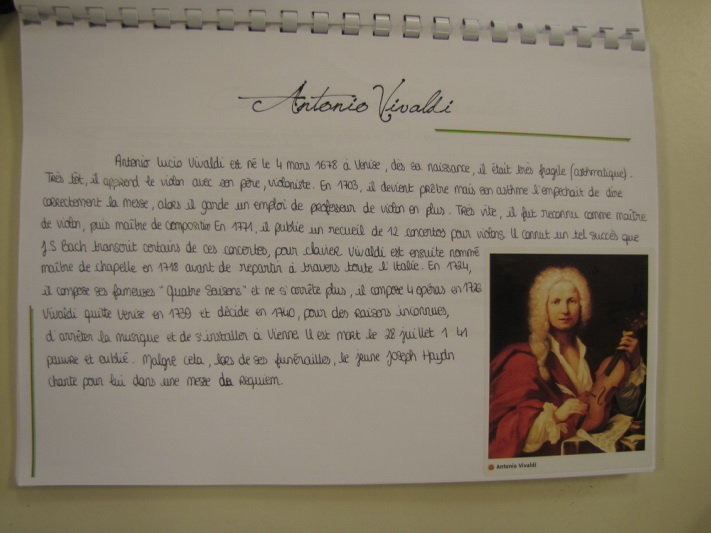 Antonio Vivaldi
Antonio Lucio Vivaldi est né le 4 mars 1678 à Venise, dès sa naissance, il était très fragile (asthmatique).
Très tôt, il apprend le violon avec son père, violoniste. En 1703, il devient prêtre mais son asthme l'empechait de dire
correctement la messe, alors il garde un emploi de professeur de violon en plus. Très vite, il fut reconnu comme maître
de violon, puis maître de compositior En 1771, il publie un recueil de 12 concertos pour violons. Il connut un tel succès que
J.S Bach transcrit certains de ces concertos, pour clavier. Vivaldi est ensuite nommé
maître de chapelle en 1718 avant de repartir à travers toute l'italie. En 1724,
il compose ses fameuses "Quatre Saisons" et ne s'arrête plus, il compose 4 opéras en 1726
Vivaldi quitte Venise en 1739 et décide en 1740, pour des raisons inconnues,
d'arrêter la musique et de s'installer à Vienne. Il est mort le 28 juillet 1 41
pauvre et oublié. Malgré cela, lors de ses funérailles, le jeune Joseph Haydn
chante pour lui dans une messe de Requiem.
Antonio Vivaldi